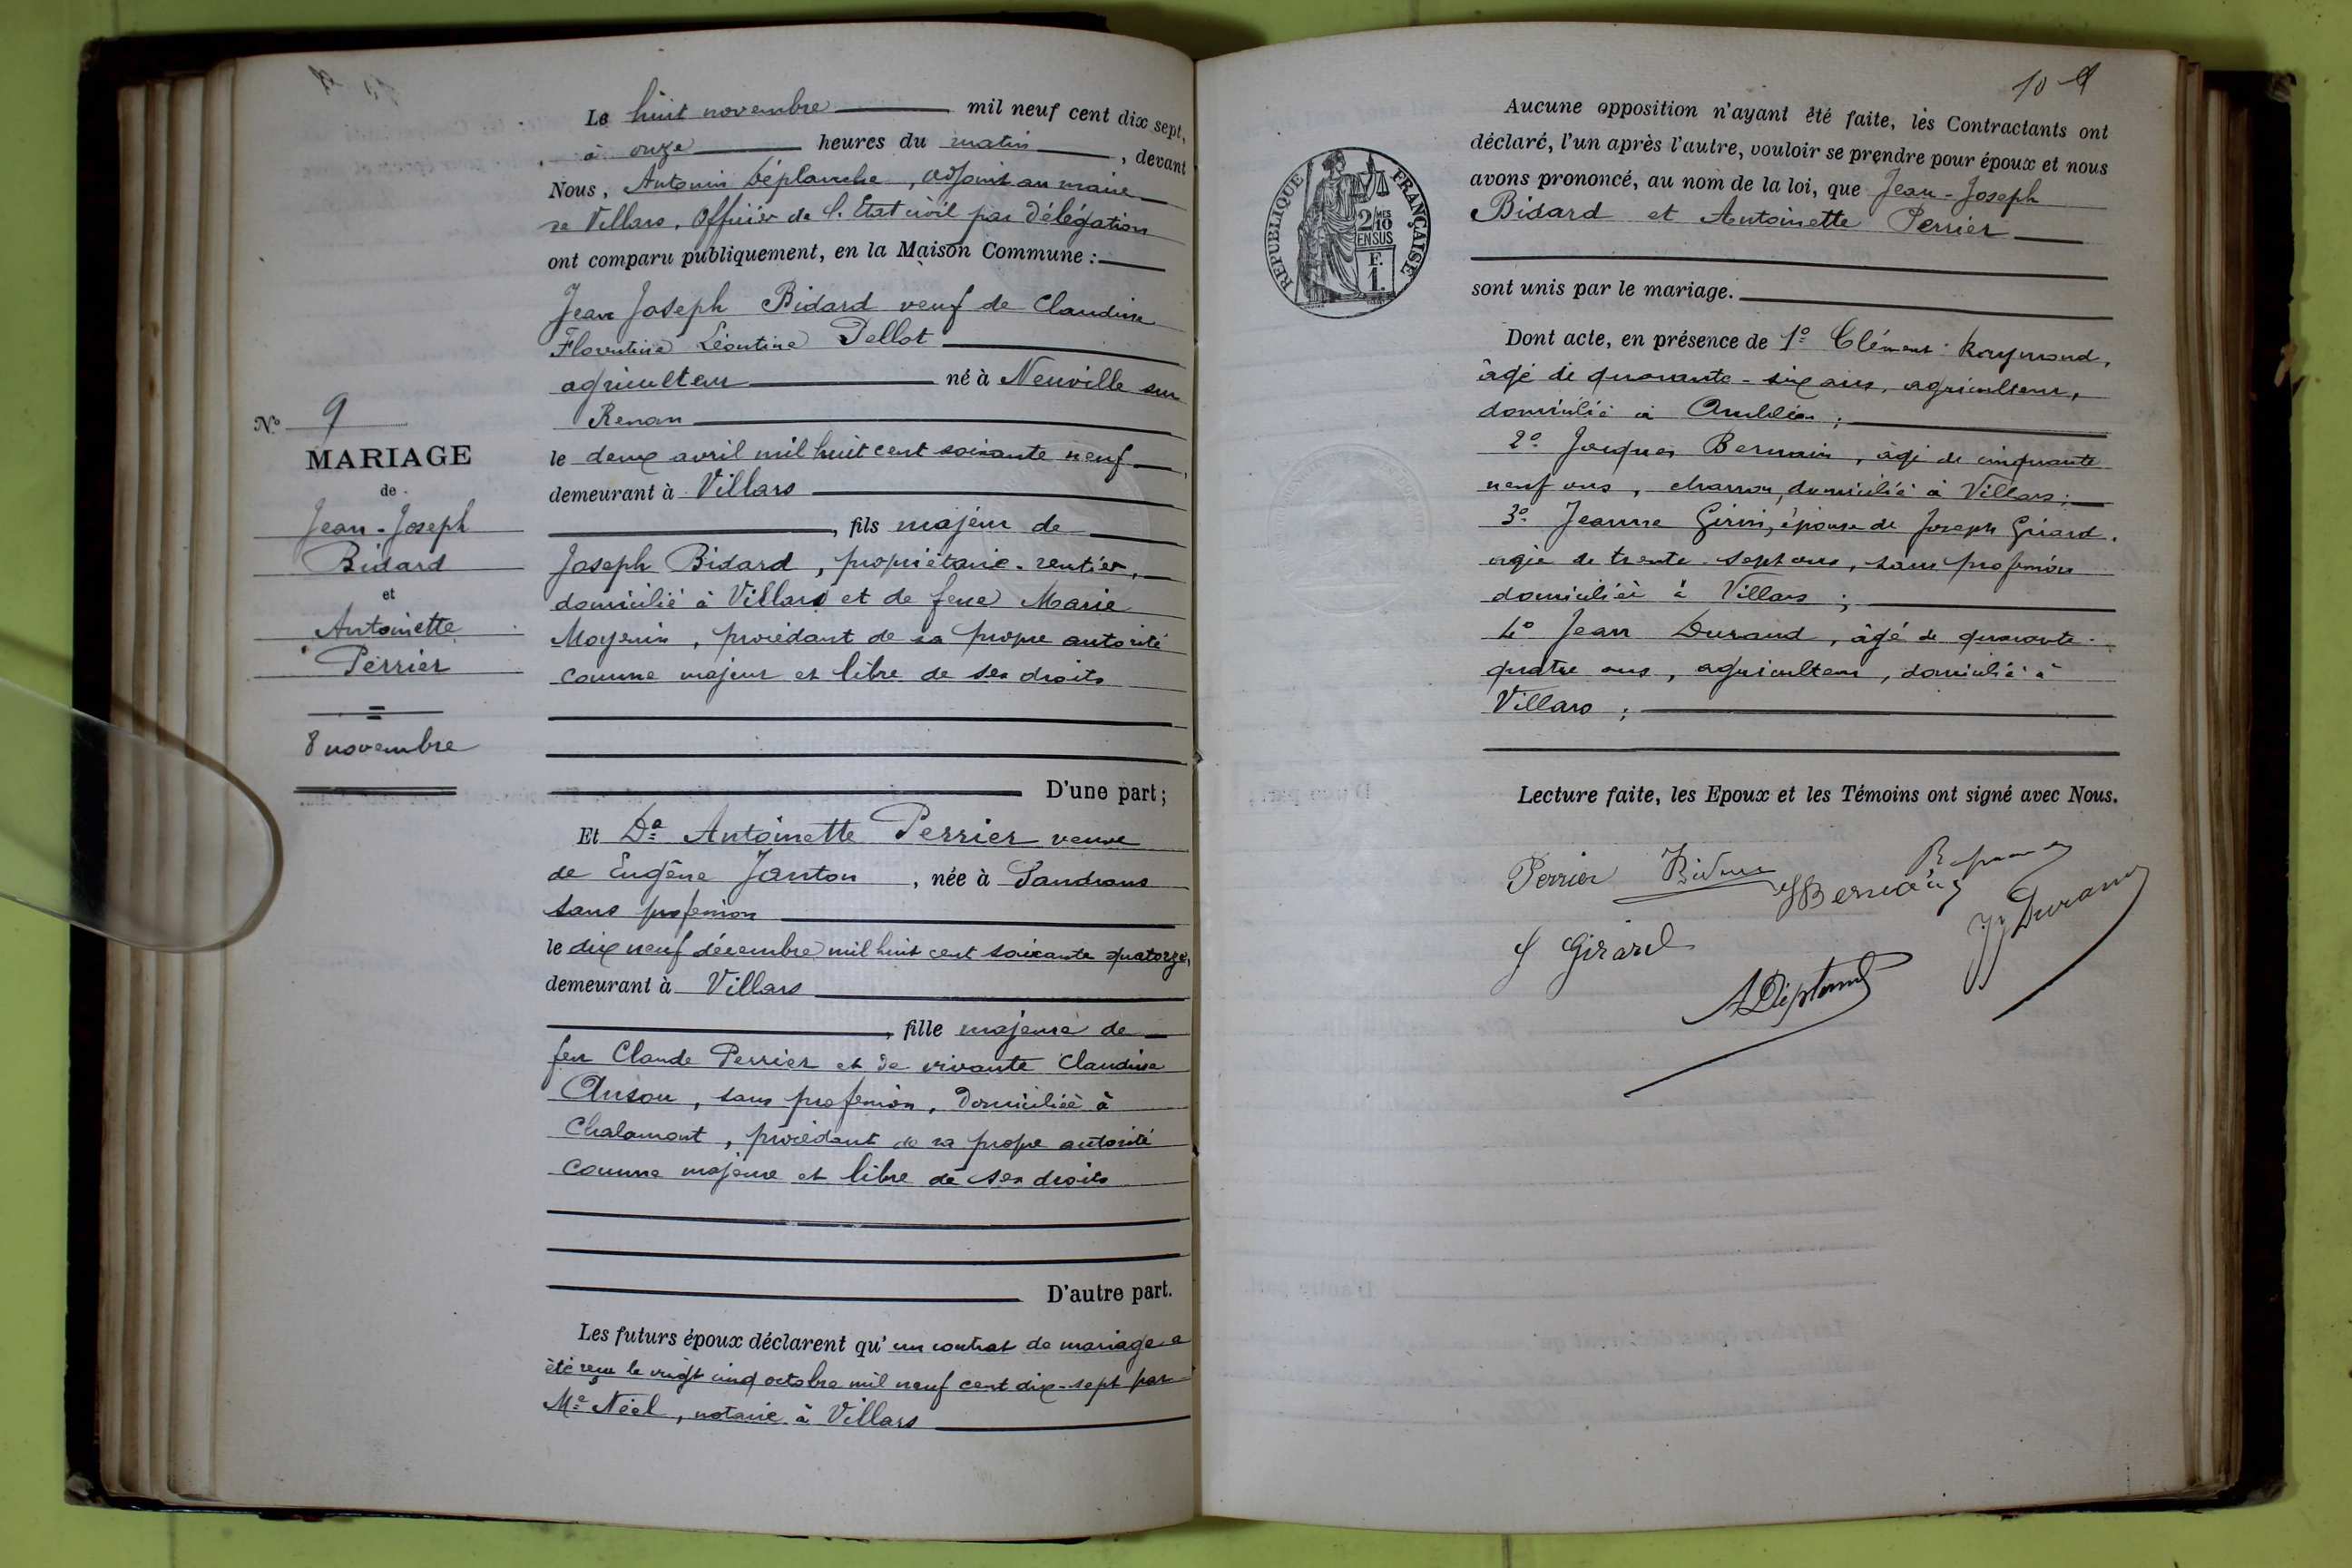 N° 9
MARIAGE
de
Jean-Joseph
Bidard
et
Antoinette
Perrier
8 novembre
Le huit novembre mil neuf cent dix sept,
à onze heures du matin, devant
Nous, Antonin Déplanche, adjoint au maire
de Villars, Officier de l'Etat civil par délégation
ont comparu publiquement, en la Maison Commune :
Jean Joseph Bidard veuf de Claudine
Florentine Léontine Pellot
agriculteur né à Neuville sur
Renon
le deux avril mil huit cent soixante neuf,
demeurant à Villars
, fils majeur de
Joseph Bidard, propriétaire-rentier,
domicilié à Villars et de feue Marie
Moyenin, procédant de sa propre autorité
comme majeur et libre de ses droits
D'une part;
Et De Antoinette Perrier veuve
de Eugène Janton, née à Sandrans
sans profession
le dix neuf décembre mil huit cent soixante quatorze,
demeurant à Villars
, fille majeure de
feu Claude Perrier et de vivante Claudine
Anson, sans profession, domiciliée à
Chalamont, procédant de sa propre autorité
comme majeure et libre de ses droits
D'autre part.
Les futurs époux déclarent qu'un contrat de mariage a
été reçu le vingt cinq octobre mil neuf cent dix-sept par
Me Néel, notaire à Villars
10
REPUBLIQUE FRANÇAISE
2/10 MES
EN SUS
F.
1.
Aucune opposition n'ayant été faite, les Contractants ont
déclaré, l'un après l'autre, vouloir se prendre pour époux et nous
avons prononcé, au nom de la loi, que Jean-Joseph
Bidard et Antoinette Perrier
sont unis par le mariage.
Dont acte, en présence de 1° Clément Raymond,
âgé de quarante-six ans, agriculteur,
domicilié à Ambléon ;
2° Jacques Bernain, âgé de cinquante
neuf ans, charron, domicilié à Villars ;
3° Jeanne Girin, épouse de Joseph Girard,
agée de trente-sept ans, sans profession
domiciliée à Villars ;
4° Jean Durand, âgé de quarante-
quatre ans, agriculteur, domicilié à
Villars ;
Lecture faite, les Epoux et les Témoins ont signé avec Nous.
Perrier Bidard
J Bernain
J Girard
J Durand
A Déplanche